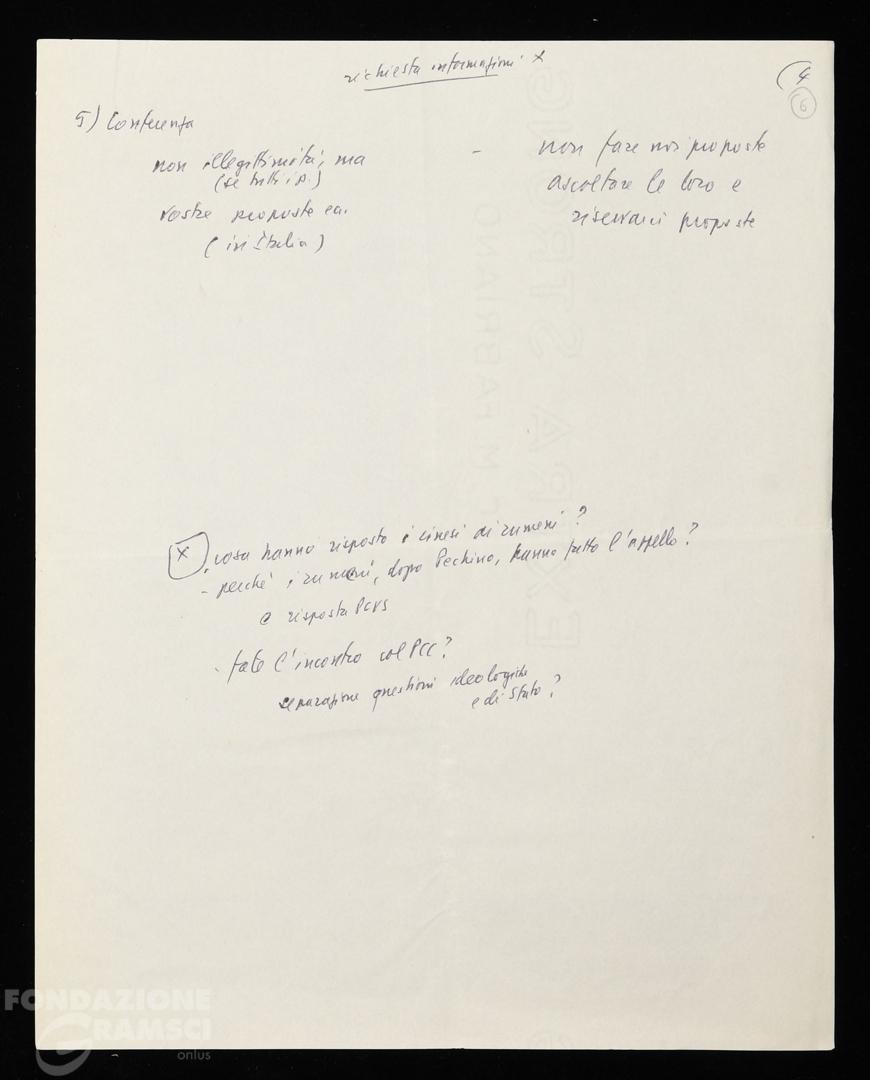 richiesta informazioni x
(4
6
5) Conferenza
non illegittimità, ma
(se tutti i p.)
vostre proposte ca.
(in Italia)
- non fare noi proposte
ascoltare le loro e
riservarci proposte
x
. cosa hanno risposto i cinesi ai rumeni?
- perché i rumeni, dopo Pechino, hanno fatto l'appello?
e risposta PCUS
- fate l'incontro col PCC?
separazione questioni ideologiche
e di Stato?
EXTRA STRONG
C. M. FABRIANO
FONDAZIONE
GRAMSCI
onlus